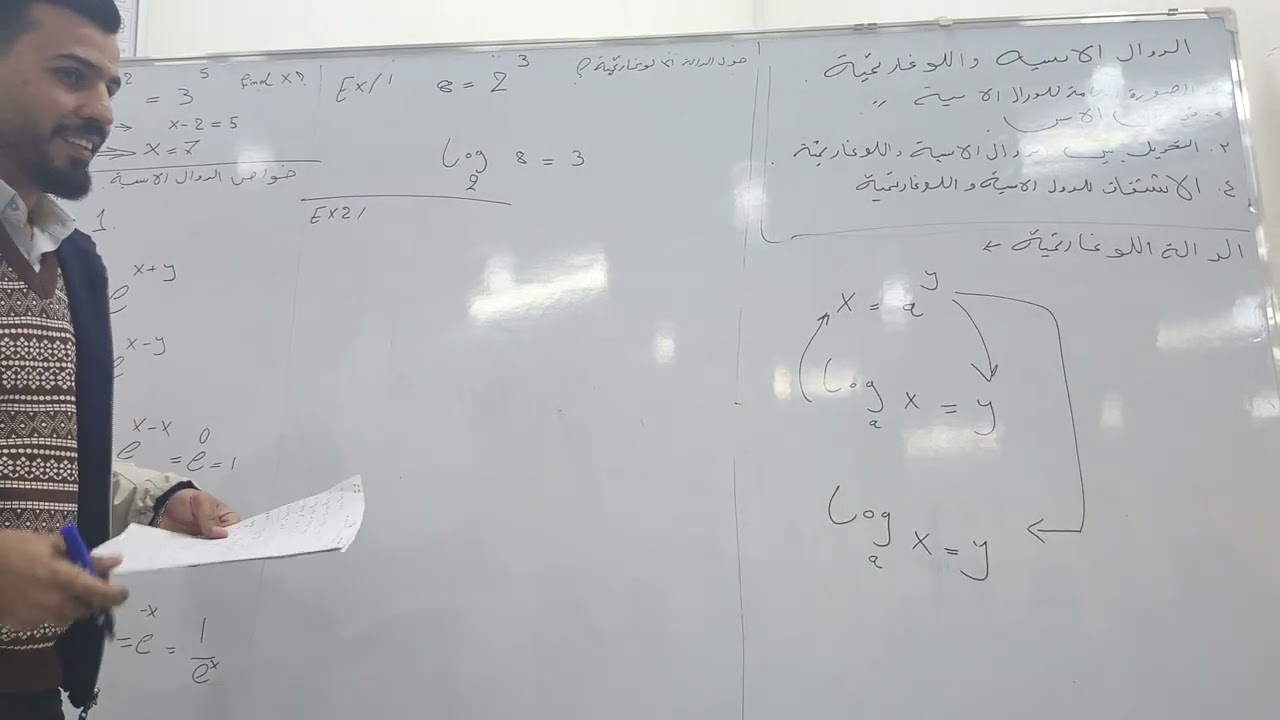 الدوال الاسية واللوغاريتمية
الصورة العامة للدوال الاسية
الاس
٣. التحويل بين الدوال الاسية واللوغاريتمية
٤. الاشتقاق للدوال الاسية و اللوغاريتمية
الدالة اللوغاريتمية ←
x = a^y
Log_a x = y
Log_a x = y
حول الدالة الى لوغاريتمية ؟
Ex/1 8 = 2^3
Log_2 8 = 3
Ex2/
2 = 3^5 find x?
→ x-2=5
⇒ x=7
خواص الدوال الاسية
1.
e^x+y
e^x-y
e^x-x = e^0 = 1
= e^-x = 1/e^x